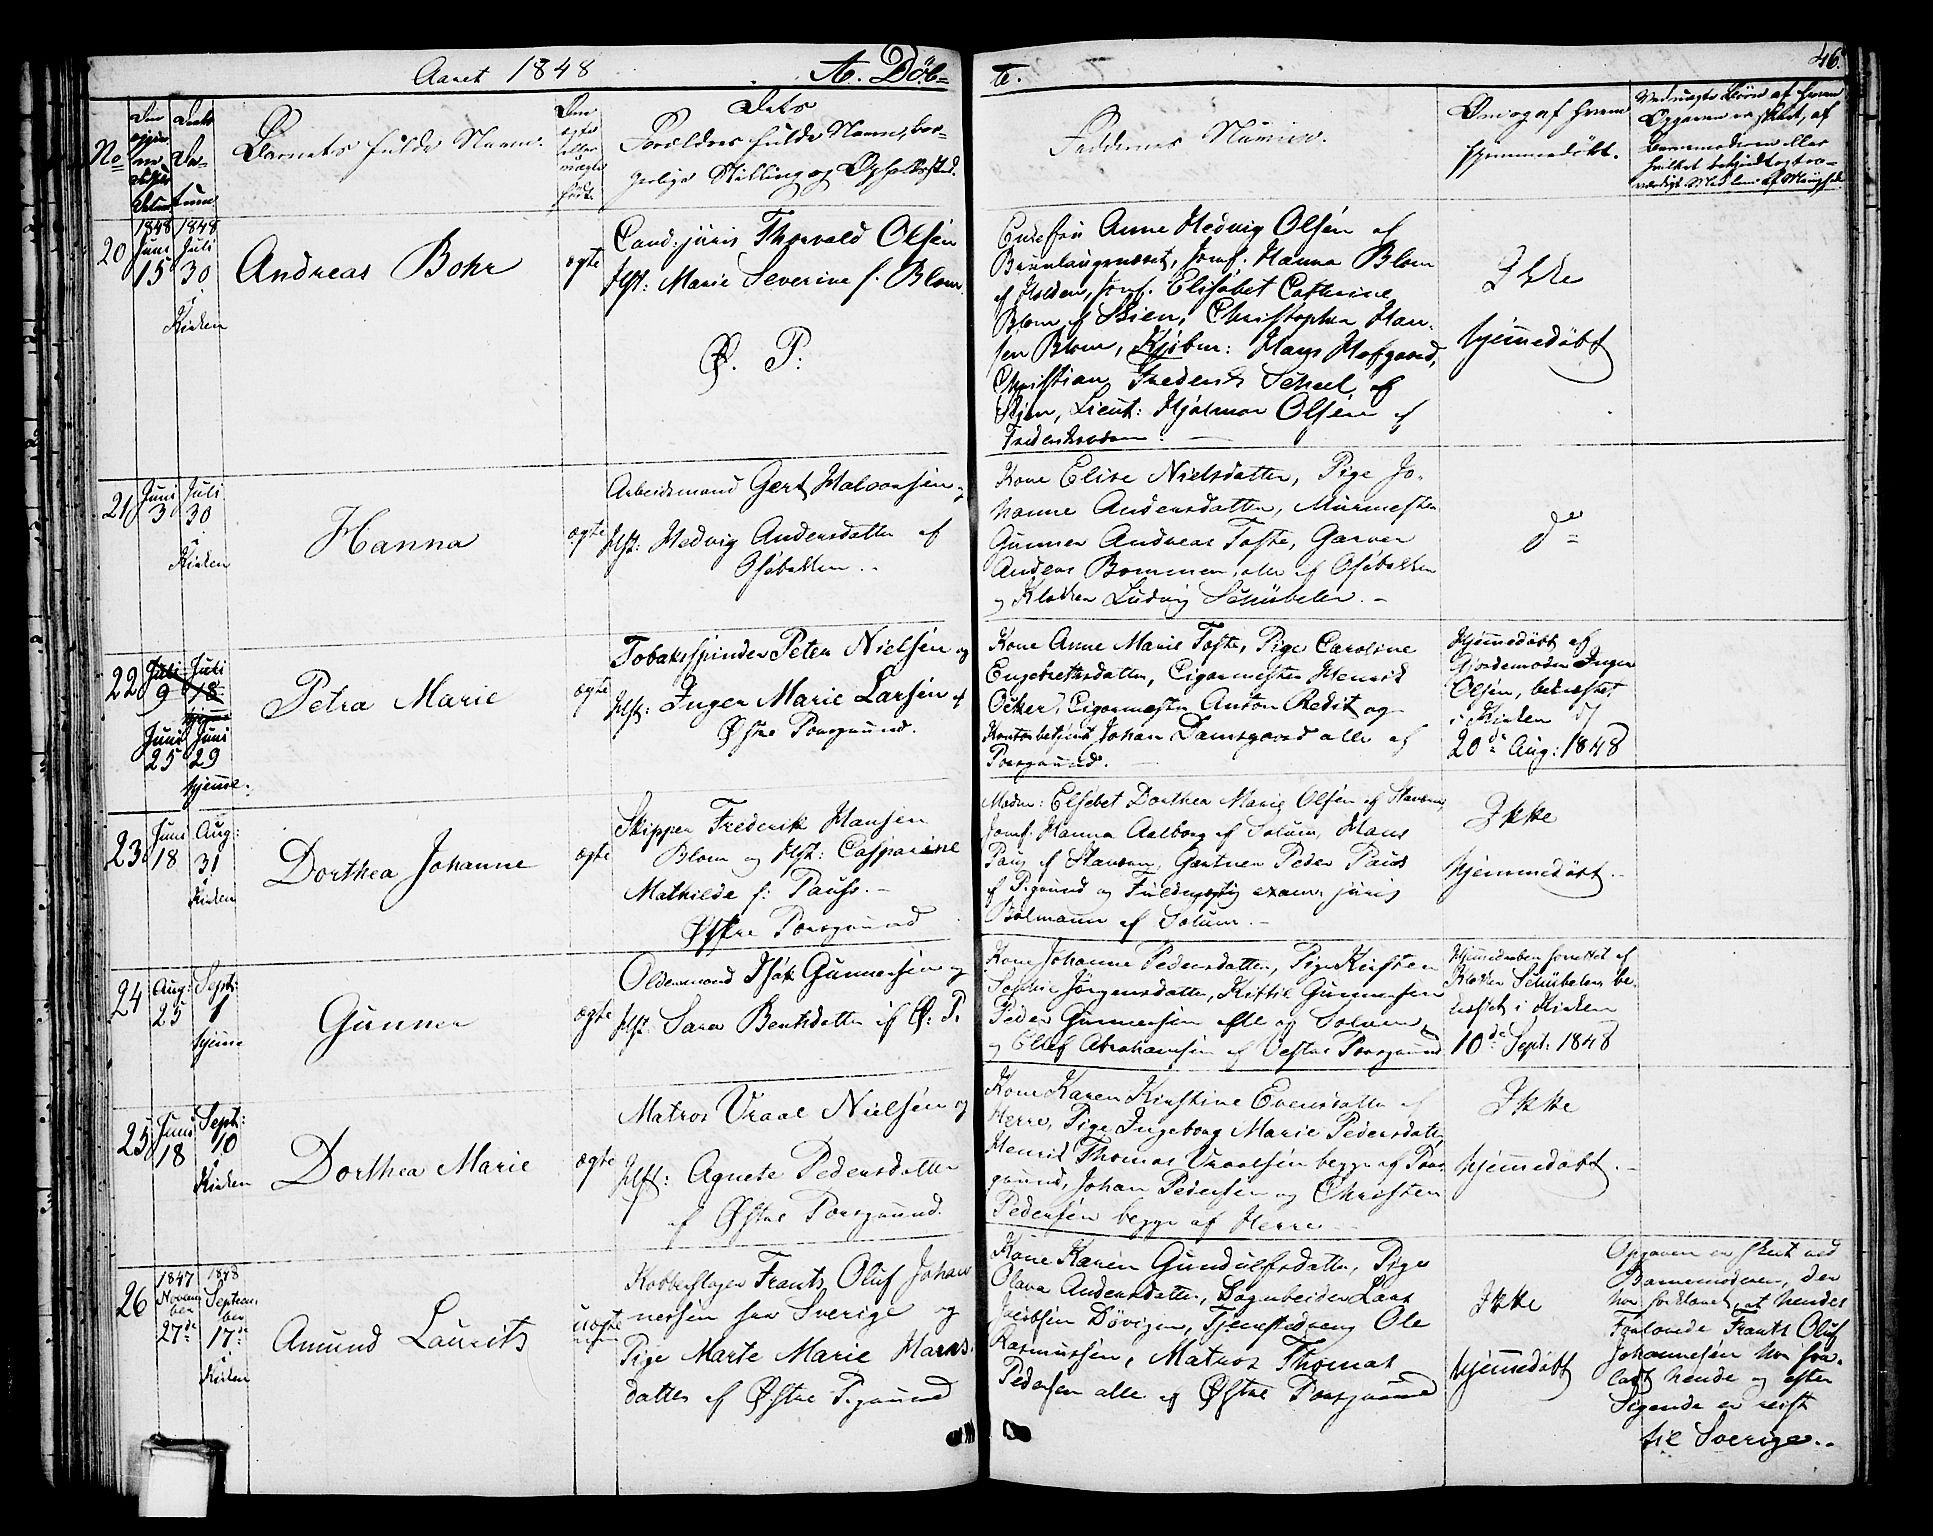 Aaret 1848
A. Døb=
te.
46.
No
Barnets fulde Navn.
Dets
Forældres fulde Navne, bor-
gerlige Stilling og Opholdssted.
Faddernes Navne.
Om og af hvem
hjemmedøbt.
20
1848
Juni
15
1848
Juli
30
Kirken
Andreas Bohr
ægte
Cand. juris Thorvald Olsen
Hst: Marie Severine f. Blom.
Ø. P:
Enkefru Anne Hedvig Olsen af
Brunlaugnæset, Jomf. Hanna Blom
af Holden, Jomf. Elisabet Cathrine
Blom af Skien, Christopher Han-
sen Blom, Kjøbm: Hans Hofgaard,
Christian Frederik Scheel af
Skien, Lieut: Hjalmar Olsen af
Frederiksværn.
Ikke
hjemmedøbt
21
Juni
3
Juli
30
Kirken
Hanna
ægte
Arbeidsmand Gert Halvorsen og
Hst: Hedvig Andersdatter af
Osebakken.
Kone Elise Nielsdatter, Pige Jo-
hanne Andersdatter, Murmester
Gunner Andreas Tofte, Garver
Anders Bommen, alle af Osebakken
og Klokker Ludvig Schübeler.
do
22
Juli
9
Juli
18
hjemme
Juni
25
Juni
29
hjemme.
Petra Marie
ægte
Tobaksspinder Peter Nielsen og
Hst: Inger Marie Larsen af
Østre Porsgrund.
Kone Anne Marie Tofte, Pige Caroline
Engebrethsdatter, Cigarmester Henrik
Cigarmester Anton Redit og
Kontorbetjent Johan Damsgaard alle af
Porsgrund.
Hjemmedøbt af
Gjordemoder Inger
Olsen, bekræftet
i Kirken
20de Aug: 1848
23
Juni
18
Aug:
31
Kirken
Dorthea Johanne
ægte
Skipper Frederik Hansen
Blom og Hst: Casparine
Mathilde f: Pauss.
Østre Porsgrund
Madm: Elsebet Dorthea Marie Olsen af
Jomf. Hanna Aalborg af Solum, Hans
Paus af Gartner Peder Paus
af P.grund og Fuldmægtig exam. juris
Bolmann af Solum.
Ikke
hjemmedøbt.
24
Aug:
25
Sept:
1
hjemme
Gunner
ægte
Oldermand Isak Gunnersen og
Hst: Sara Bentsdatter af Ø: P.
Kone Johanne Pedersdatter, Pige Kirsten
Sophie Jørgensdatter, Kittil Gunnersen
Peder Gunnersen alle og Solum,
og Ellef Abrahamsen af Vestre Porsgrund
Hjemmedaaben forrettet af
Klokker Schübeler, be-
kræftet i Kirken
10de Sept: 1848
25
Juni
18
Sept:
10
Kirken
Dorthea Marie
ægte
Matros Vraal Nielsen og
Hst: Agnete Pedersdatter
af Østre Porsgrund.
Kone Karen Kirstine Evensdatter af
Herre, Pige Ingeborg Marie Pedersdatter,
Henrik Thomas Vraalsen begge af Pors-
grund, Johan Pedersen og Christen
Pedersen begge af Herre
Ikke
hjemmedøbt.
26
1847
Novem-
ber
27de
1848
Septem-
ber
17de
Kirken
Amund Laurits
uægte
Kobberslager Frants Oluf Johan-
nessen fra Sverige og
Pige Marte Marie Hans-
datter af Østre P.grund
Kone Karen Gundulfsdatter, Pige
Olava Andersdatter, Sagarbeider Lars
Jacobsen Døvigen, Tjenestedreng Ole
Rasmussen, Matros Thomas
Pedersen alle af Østre Porsgrund
Ikke
hjemmedøbt
Opgaven er skeet ved
Barnemoderen, der
har forklaret, at hendes
Forlovede Frants Oluf
Johannesen har for-
ladt hende og efter
Sigende er reist
til Sverige.